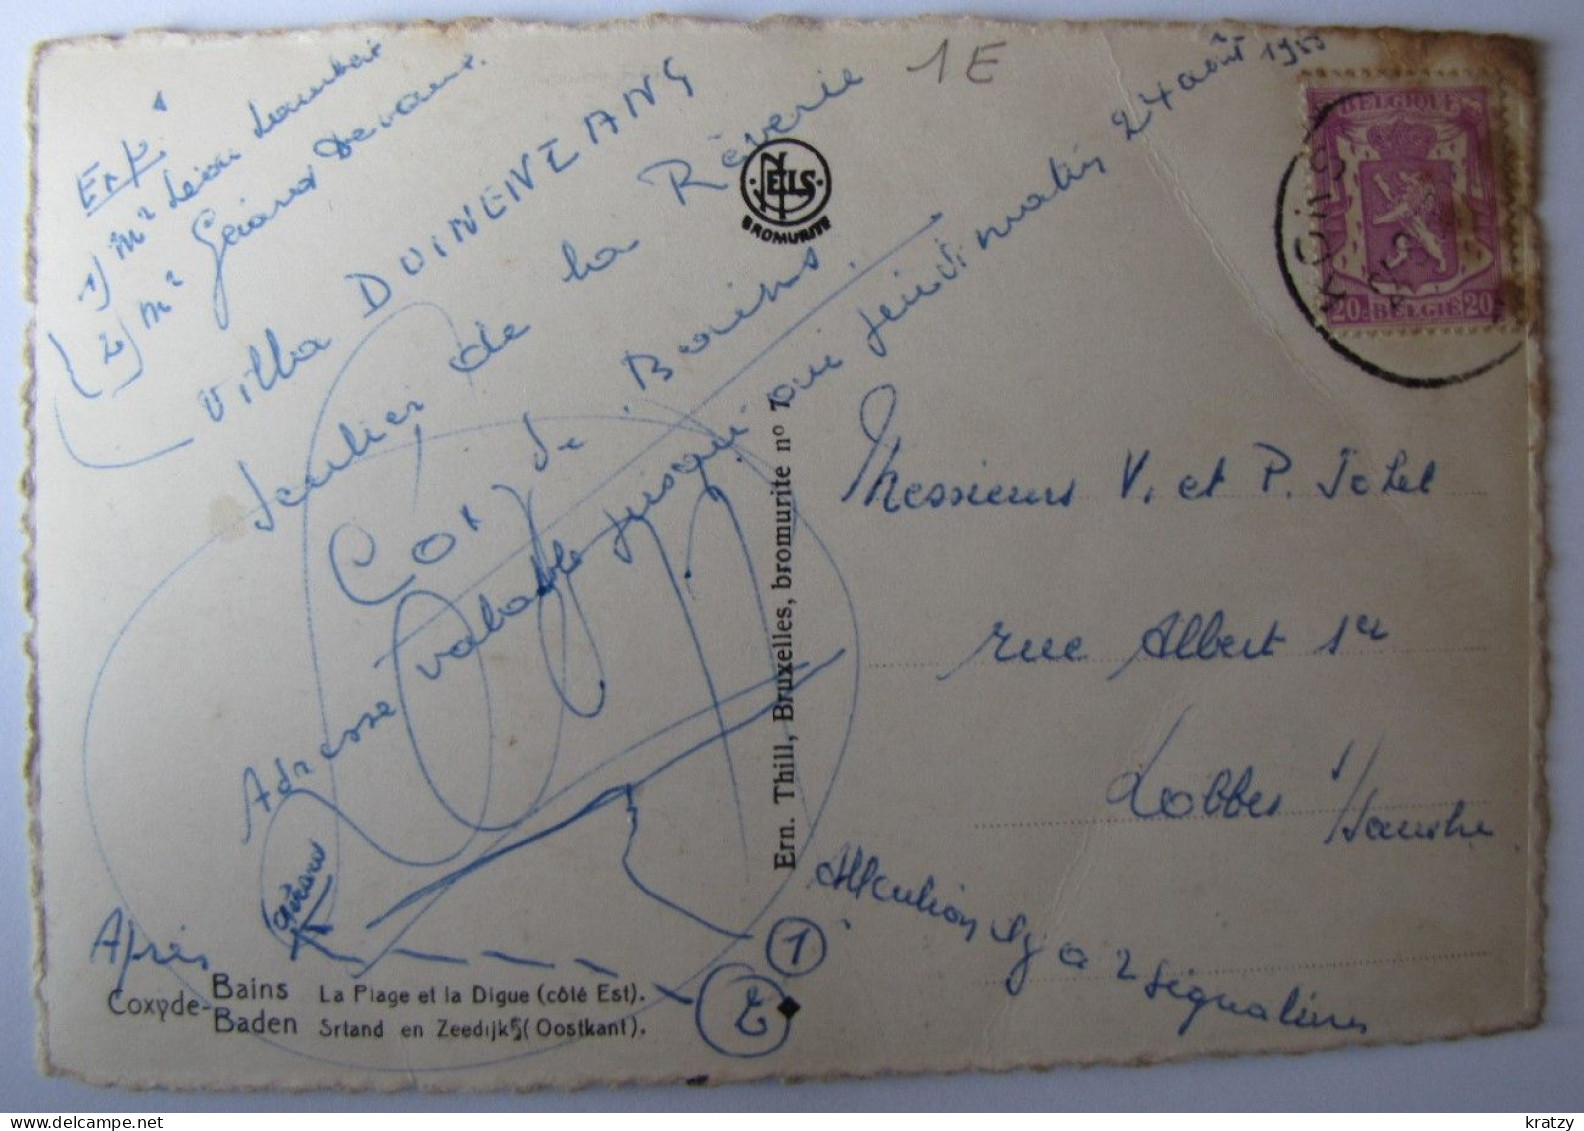 Exp.
1) Mr Léon Lambert
2) Mr Gérard Devaux
Villa DUINENZANG
Sentier de la Rêverie
Coxyde Bains.
Adresse valable jusqu'au jeudi matin 24 août 1950
Gérard
Après
1
2
1E
NELS
BROMURITE
Ern. Thill, Bruxelles, bromurite no 7
BELGIQUE
20c BELGIE 20
KOKSIJ
Messieurs V. et P. Jotel
rue Albert 1er
Lobbes s/Sambre
Attention il y a 2 signatures
Coxyde-Bains La Plage et la Digue (côté Est).
Baden Srtand en Zeedijk (Oostkant).
www.delcampe.net
kratzy